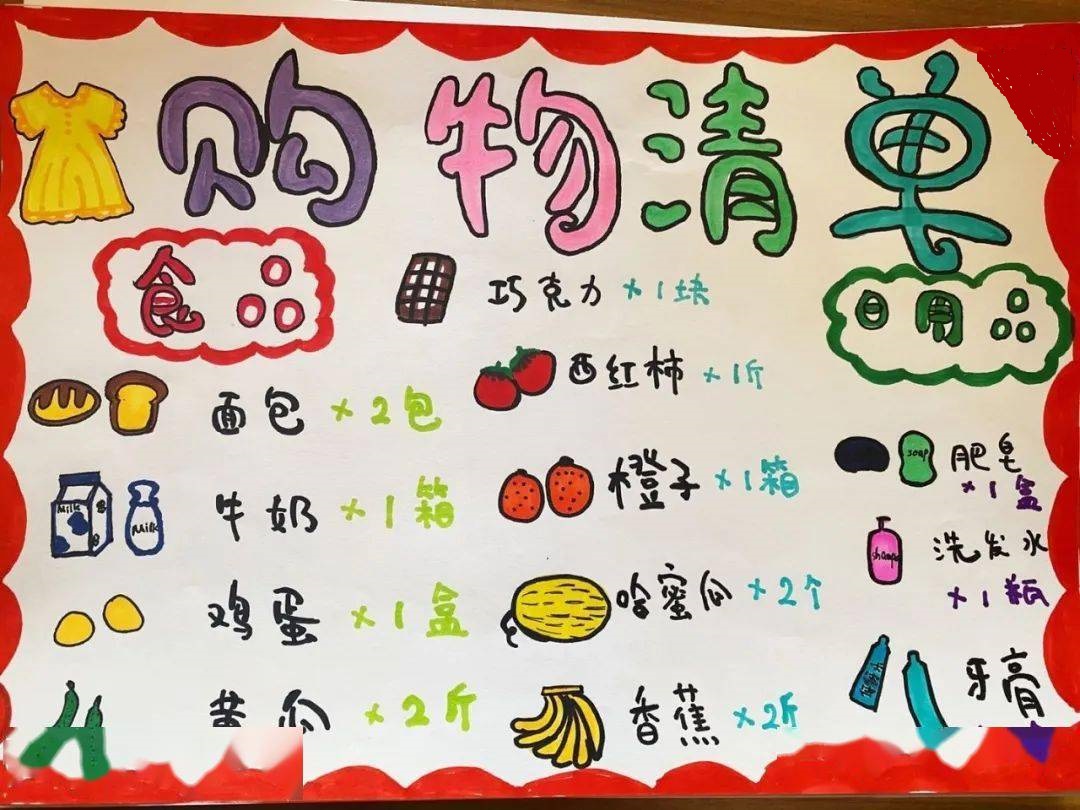 购物清单
食品
巧克力 ×1块
日用品
西红柿 ×1斤
面包 ×2包
橙子 ×1箱
soap
肥皂
×1盒
Milk
Milk
牛奶 ×1箱
洗发水
×1瓶
鸡蛋 ×1盒
哈蜜瓜 ×2个
黄瓜 ×2斤
香蕉 ×2斤
牙膏